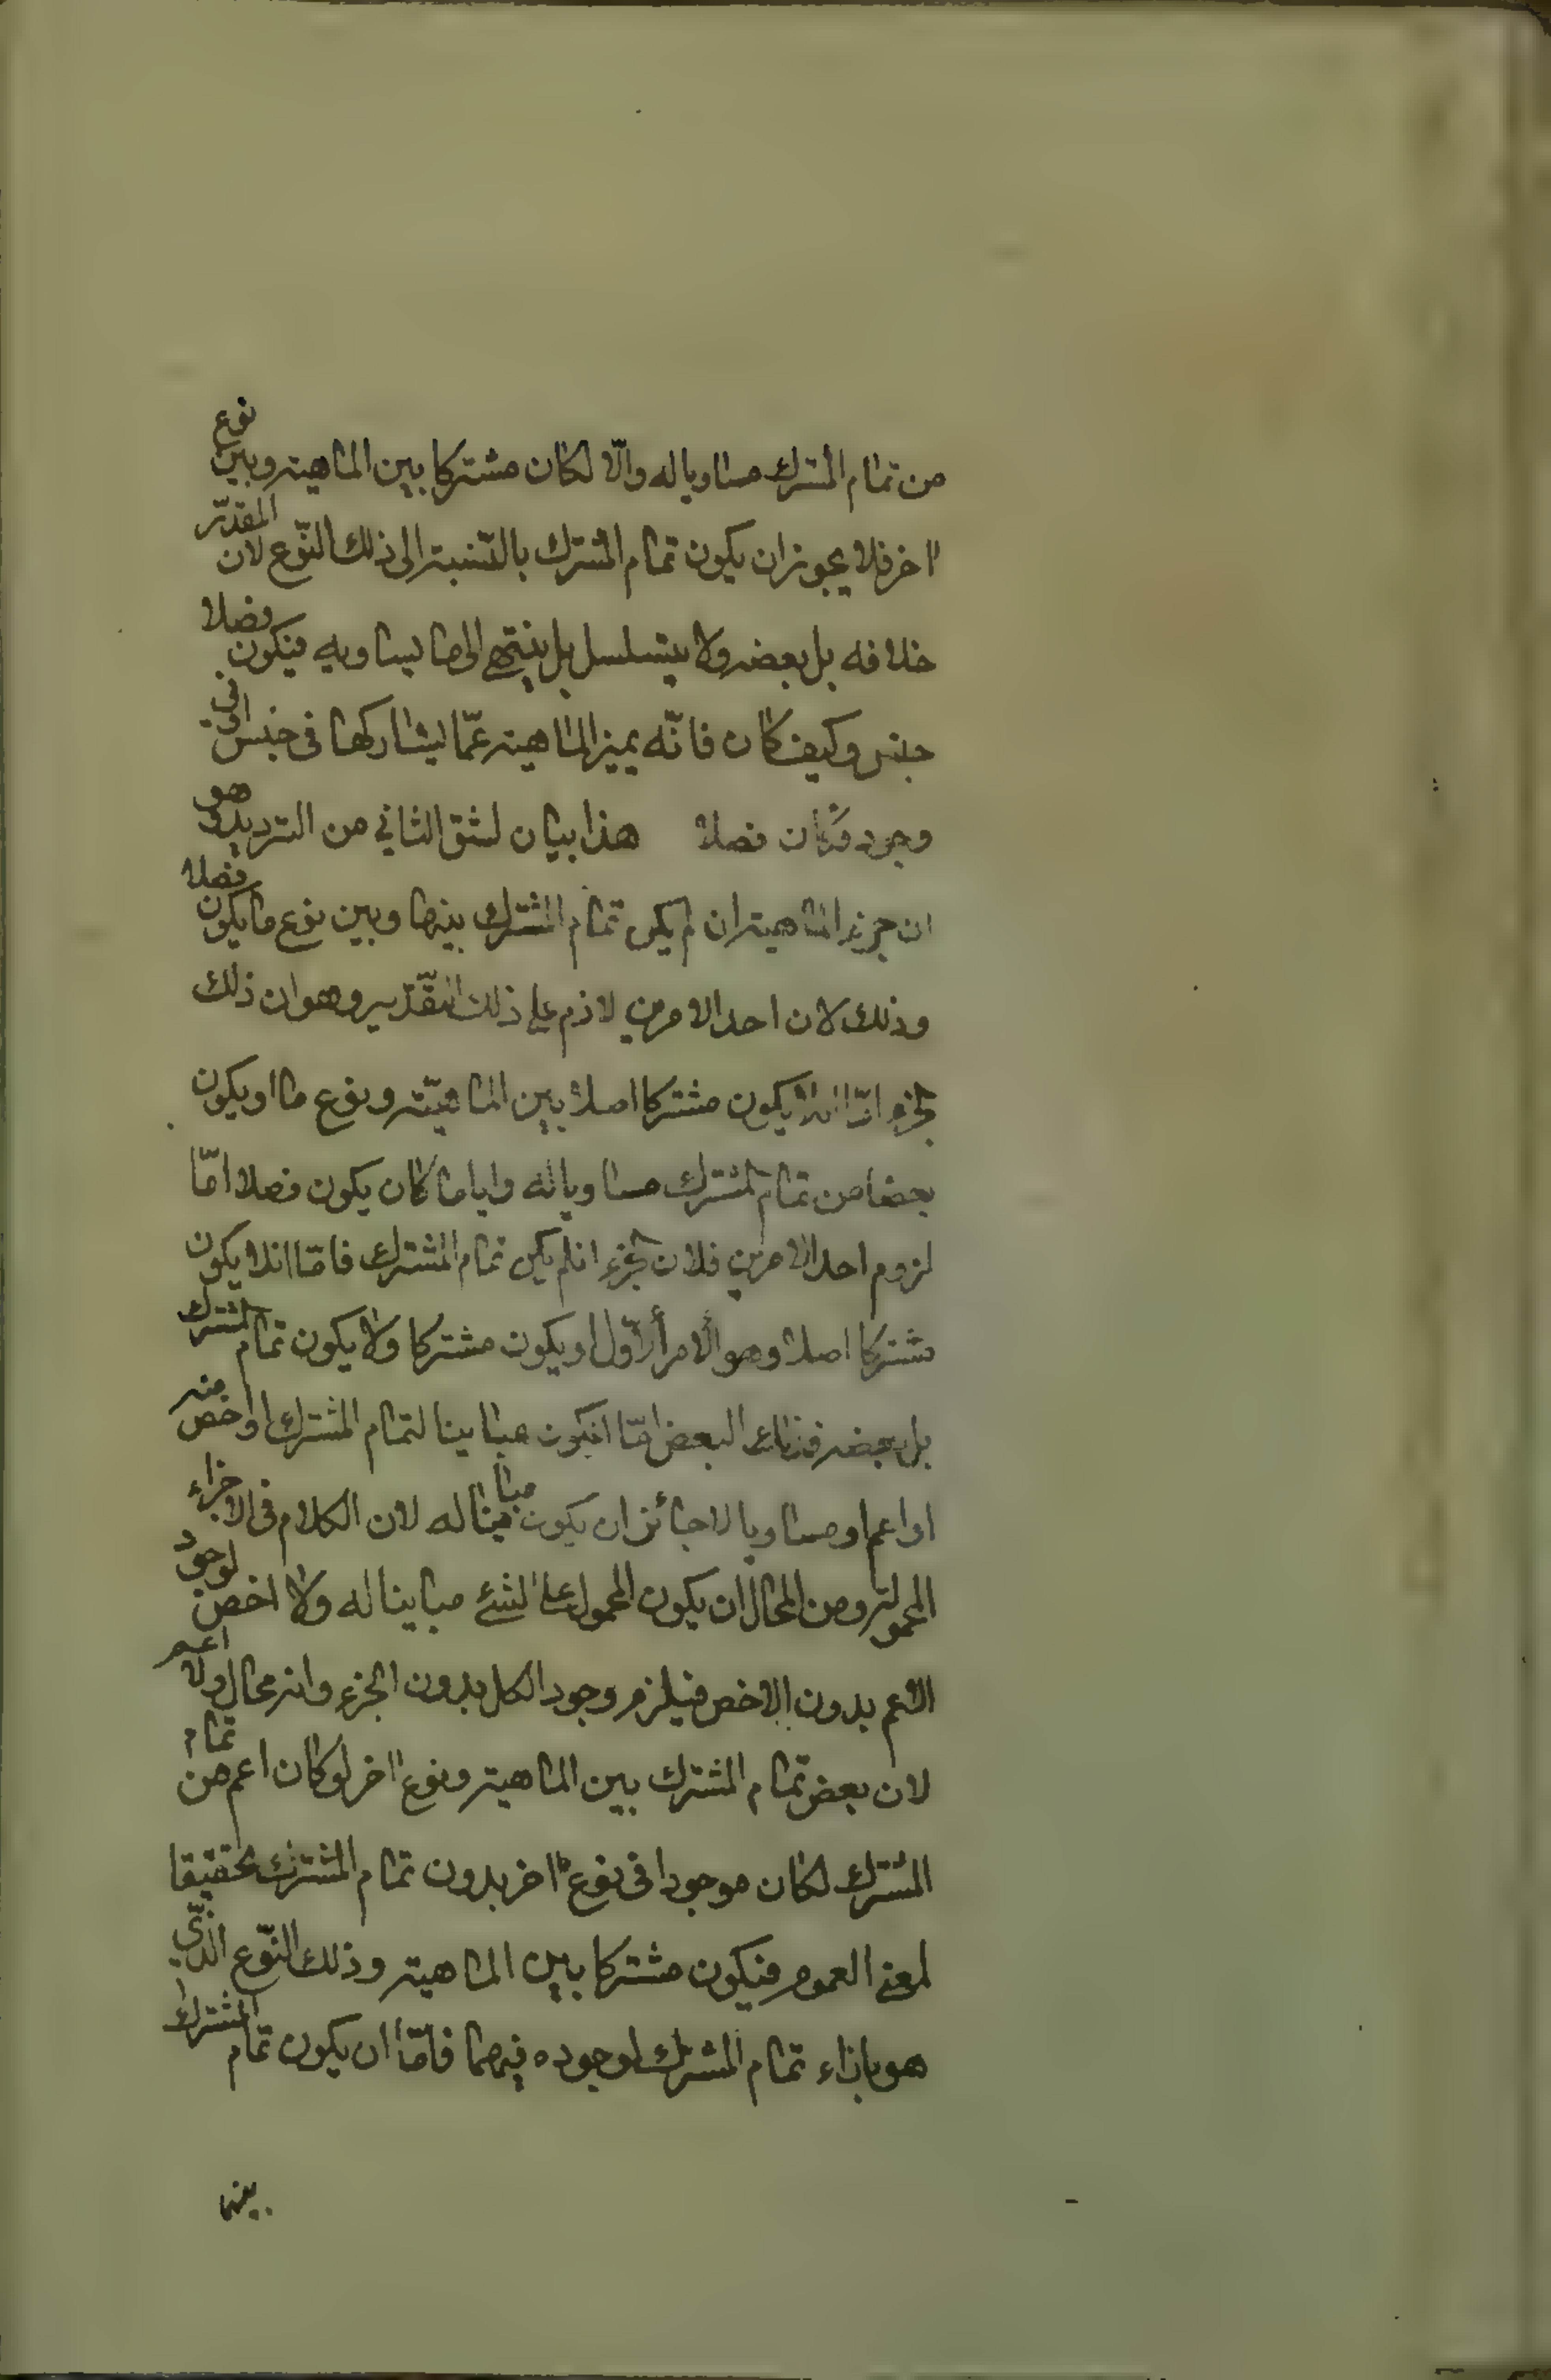 من تمام المشترك مساويا له والّا لكان مشتركا بين الماهية وبين نوع
اخر فلا يجوز ان يكون تمام المشترك بالنّسبة الى ذلك النّوع لان المقدّر
خلافه بل بعضه ولا يتسلسل بل ينتهى الى ما يساويه فيكون فصلا
جنس وكيف كان فانّه يميز الماهية عمّا يشاركها فى جنس او فى
وجود فكان فصلا هذا بيان لشق الثاني من الترديد وهو
ان جزء الماهية ان لم يكن تمام المشترك بينها وبين نوع ما يكون فصلا
وذلك لان احد الامرين لازم على ذلك التقّدير وهو ان ذلك
الجزء امّا ان لا يكون مشتركا اصلا بين الماهيّة ونوع ما او يكون
بعضا من تمام المشترك مساويا له واياما كان يكون فصلا امّا
لزوم احد الامرين فلان الجزء ان لم يكن تمام المشترك فامّا ان لا يكون
مشتركا اصلا وهو الامر الاوّل او يكون مشتركا ولا يكون تمام المشترك
بل بعضه فذلك البعض امّا ان يكون مباينا لتمام المشترك او اخص منه
او اعم او مساويا لا جائز ان يكون مباينا له لان الكلام فى الاجزاء
المحمولة ومن المحال ان يكون المحمول على الشئ مباينا له ولا اخص لوجود
الاعم بدون الاخص فيلزم وجود الكل بدون الجزء وانه محال ولا اعم
لان بعض تمام المشترك بين الماهية ونوع اخر لو كان اعم من تمام
المشترك لكان موجودا فى نوع اخر بدون تمام المشترك تحقيقا
لمعنى العموم فيكون مشتركا بين الماهية وذلك النّوع الّذي
هو بازاء تمام المشترك لوجوده فيهما فامّا ان يكون تمام المشترك
بينها